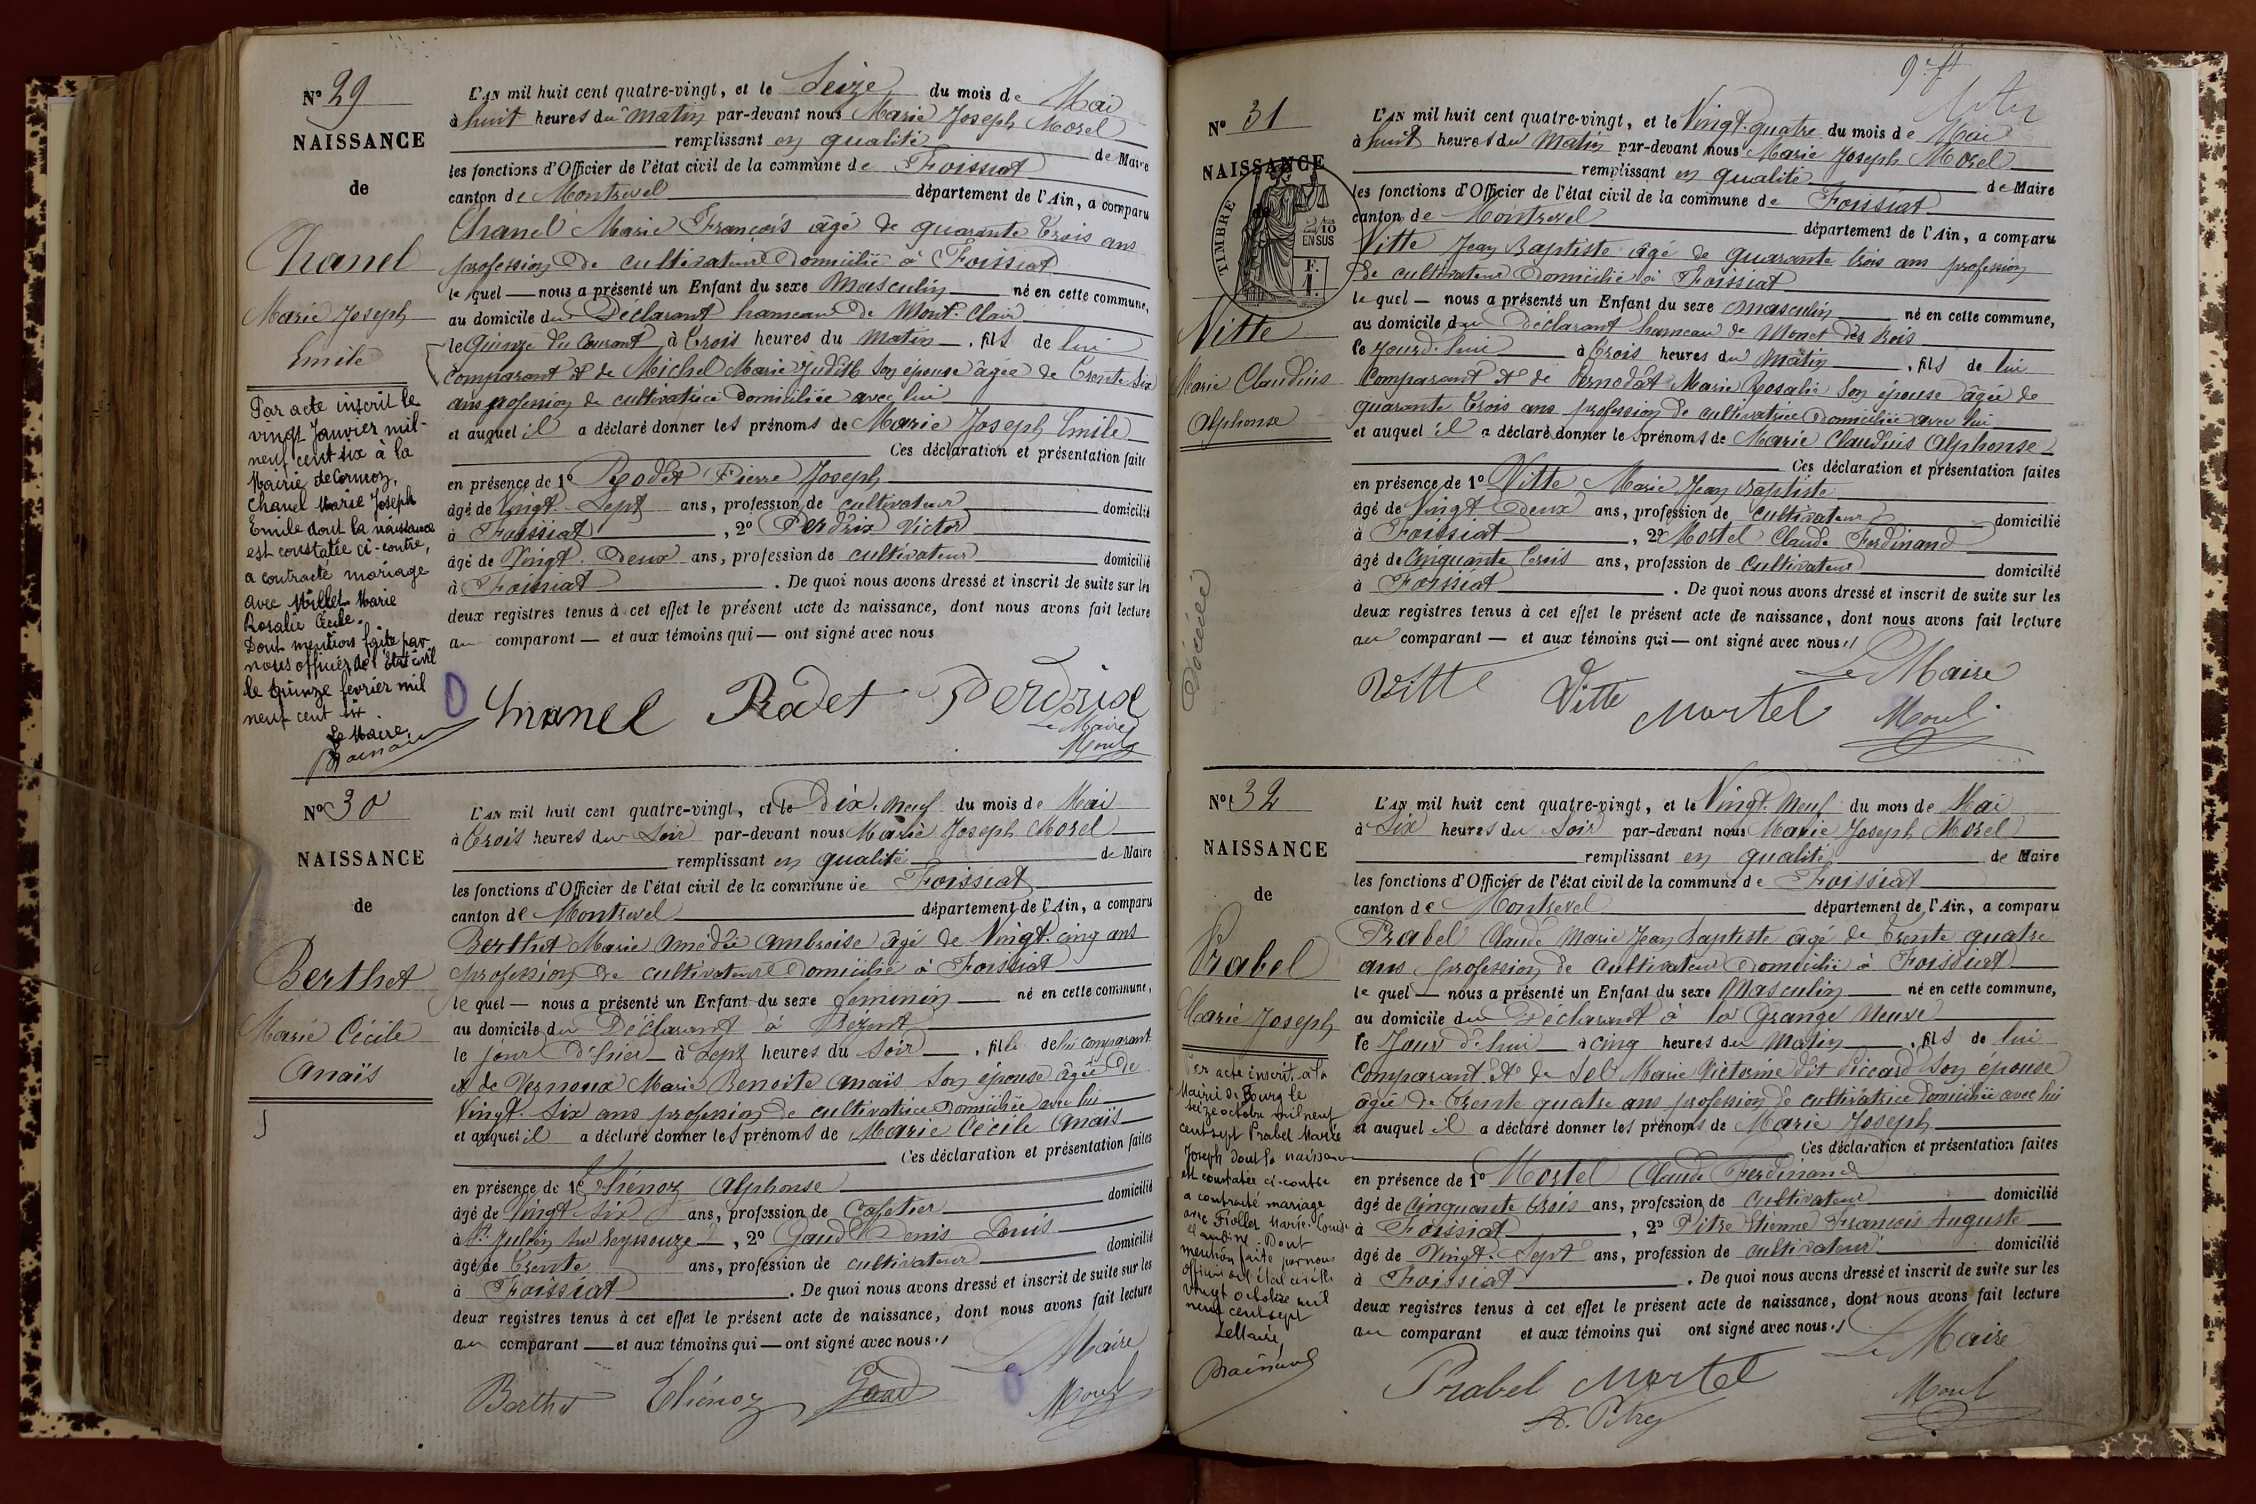 Nº 29
NAISSANCE
de
Chanel
Marie Joseph
Emile
Par acte inscrit le
vingt Janvier mil-
neuf cent six à la
Mairie de Cormoz,
Chanel Marie Joseph
Emile dont la naissance
est constatée ci-contre,
a contracté mariage
avec Millet Marie
Rosalie Cécile.
Dont mention faite par
nous officier de l'État civil
le quinze février mil
neuf cent six
Le Maire
L'AN mil huit cent quatre-vingt, et le Seize du mois de Mai
à huit heures du matin par-devant nous Marie Joseph Morel
remplissant en qualité de Maire
les fonctions d'Officier de l'état civil de la commune de Foissiat
canton de Montrevel département de l'Ain, a comparu
Chanel Marie François âgé de quarante trois ans
profession de cultivateur domicilié à Foissiat
le quel — nous a présenté un Enfant du sexe Masculin né en cette commune,
au domicile du Déclarant hameau de Mont-Clair
le Quinze du Courant à trois heures du matin, fils de lui
comparant et de Michel Marie Judith son épouse âgée de trente six
ans profession de cultivatrice domiciliée avec lui
et auquel il a déclaré donner les prénoms de Marie Joseph Emile
Ces déclaration et présentation faites
en présence de 1º Rodet Pierre Joseph
âgé de vingt-sept ans, profession de cultivateur domicilié
à Foissiat, 2º Perdrix Victor
âgé de Vingt-Deux ans, profession de cultivateur domicilié
à Foissiat. De quoi nous avons dressé et inscrit de suite sur les
deux registres tenus à cet effet le présent acte de naissance, dont nous avons fait lecture
au comparant — et aux témoins qui — ont signé avec nous
Chanel Rodet Perdrix
Le Maire
Morel
Nº 30
NAISSANCE
de
Berthet
Marie Cécile
Anaïs
L'AN mil huit cent quatre-vingt, et le Dix-neuf du mois de Mai
à trois heures du Soir par-devant nous Marie Joseph Morel
remplissant en qualité de Maire
les fonctions d'Officier de l'état civil de la commune de Foissiat
canton de Montrevel département de l'Ain, a comparu
Berthet Marie Amédée Ambroise âgé de Vingt-cinq ans
profession de cultivateur domicilié à Foissiat
le quel — nous a présenté un Enfant du sexe féminin né en cette commune,
au domicile du Déclarant à
le jour d'hier à sept heures du soir, fille de lui comparant
et de Vernoux Marie Benoite Anaïs son épouse âgée de
Vingt-six ans profession de cultivatrice domiciliée avec lui
et auquel il a déclaré donner les prénoms de Marie Cécile Anaïs
Ces déclaration et présentation faites
en présence de 1º Thénoz Alphonse
âgé de Vingt-six ans, profession de Cafetier domicilié
à St Julien sur Reyssouze, 2º Gaud Denis Louis
âgé de trente ans, profession de cultivateur domicilié
à Foissiat. De quoi nous avons dressé et inscrit de suite sur les
deux registres tenus à cet effet le présent acte de naissance, dont nous avons fait lecture
au comparant — et aux témoins qui — ont signé avec nous
Le Maire
Berthet Thénoz Gaud Morel
Nº 31
NAISSANCE
TIMBRE
2/10
EN SUS
Vitte
Marie Claudius
Alphonse
Décédé
L'AN mil huit cent quatre-vingt, et le Vingt-quatre du mois de Mai
à huit heures du Matin par-devant nous Marie Joseph Morel
remplissant en qualité de Maire
les fonctions d'Officier de l'état civil de la commune de Foissiat
canton de Montrevel département de l'Ain, a comparu
Vitte Jean Baptiste âgé de quarante trois ans profession
de cultivateur domicilié à Foissiat
le quel — nous a présenté un Enfant du sexe masculin né en cette commune,
au domicile du déclarant hameau de
le jourd'hui à trois heures du Matin, fils de lui
Comparant et de Marie Rosalie son épouse âgée de
quarante trois ans profession de cultivatrice domiciliée avec lui
et auquel il a déclaré donner les prénoms de Marie Claudius Alphonse
Ces déclaration et présentation faites
en présence de 1º Vitte Marie Jean Baptiste
âgé de Vingt Deux ans, profession de cultivateur domicilié
à Foissiat, 2º Mortel Claude Ferdinand
âgé de Cinquante trois ans, profession de Cultivateur domicilié
à Foissiat. De quoi nous avons dressé et inscrit de suite sur les
deux registres tenus à cet effet le présent acte de naissance, dont nous avons fait lecture
au comparant — et aux témoins qui — ont signé avec nous
Le Maire
Vitte Vitte Mortel Morel
Nº 32
NAISSANCE
de
Prabel
Marie Joseph
Par acte inscrit à la
Mairie de Bourg le
seize octobre mil neuf
cent sept Prabel Marie
Joseph dont la naissance
est constatée ci-contre
a contracté mariage
avec Marie Louise
Claudine. Dont
mention faite par nous
officier de l'état civil le
vingt octobre mil
neuf cent sept
Le Maire
L'AN mil huit cent quatre-vingt, et le Vingt-Neuf du mois de Mai
à Six heures du Soir par-devant nous Marie Joseph Morel
remplissant en qualité de Maire
les fonctions d'Officier de l'état civil de la commune de Foissiat
canton de Montrevel département de l'Ain, a comparu
Prabel Claude Marie Jean Baptiste âgé de trente quatre
ans profession de Cultivateur domicilié à Foissiat
le quel — nous a présenté un Enfant du sexe Masculin né en cette commune,
au domicile du Déclarant à la Grange Neuve
le Jour d'hui à cinq heures du Matin, fils de lui
Comparant et de Sel Marie Victorine dit Piccard son épouse
âgée de trente quatre ans profession de cultivatrice domiciliée avec lui
et auquel il a déclaré donner les prénoms de Marie Joseph
Ces déclaration et présentation faites
en présence de 1º Mortel Claude Ferdinand
âgé de cinquante trois ans, profession de cultivateur domicilié
à Foissiat, 2º Pitre Etienne François Auguste
âgé de Vingt-Sept ans, profession de cultivateur domicilié
à Foissiat. De quoi nous avons dressé et inscrit de suite sur les
deux registres tenus à cet effet le présent acte de naissance, dont nous avons fait lecture
au comparant et aux témoins qui ont signé avec nous
Le Maire
Prabel Mortel
Morel